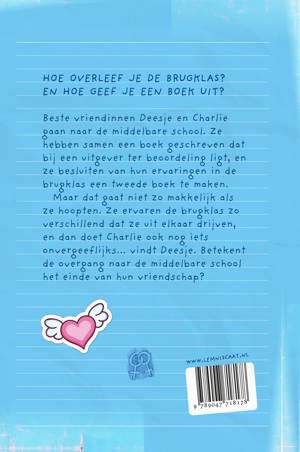 HOE OVERLEEF JE DE BRUGKLAS?
EN HOE GEEF JE EEN BOEK UIT?
Beste vriendinnen Deesje en Charlie
gaan naar de middelbare school. Ze
hebben samen een boek geschreven dat
bij een uitgever ter beoordeling ligt, en
ze besluiten van hun ervaringen in de
brugklas een tweede boek te maken.
Maar dat gaat niet zo makkelijk als
ze hoopten. Ze ervaren de brugklas zo
verschillend dat ze uit elkaar drijven,
en dan doet Charlie ook nog iets
onvergeeflijks... vindt Deesje. Betekent
de overgang naar de middelbare school
het einde van hun vriendschap?
WWW.LEMNISCAAT.NL
9 789047 718178